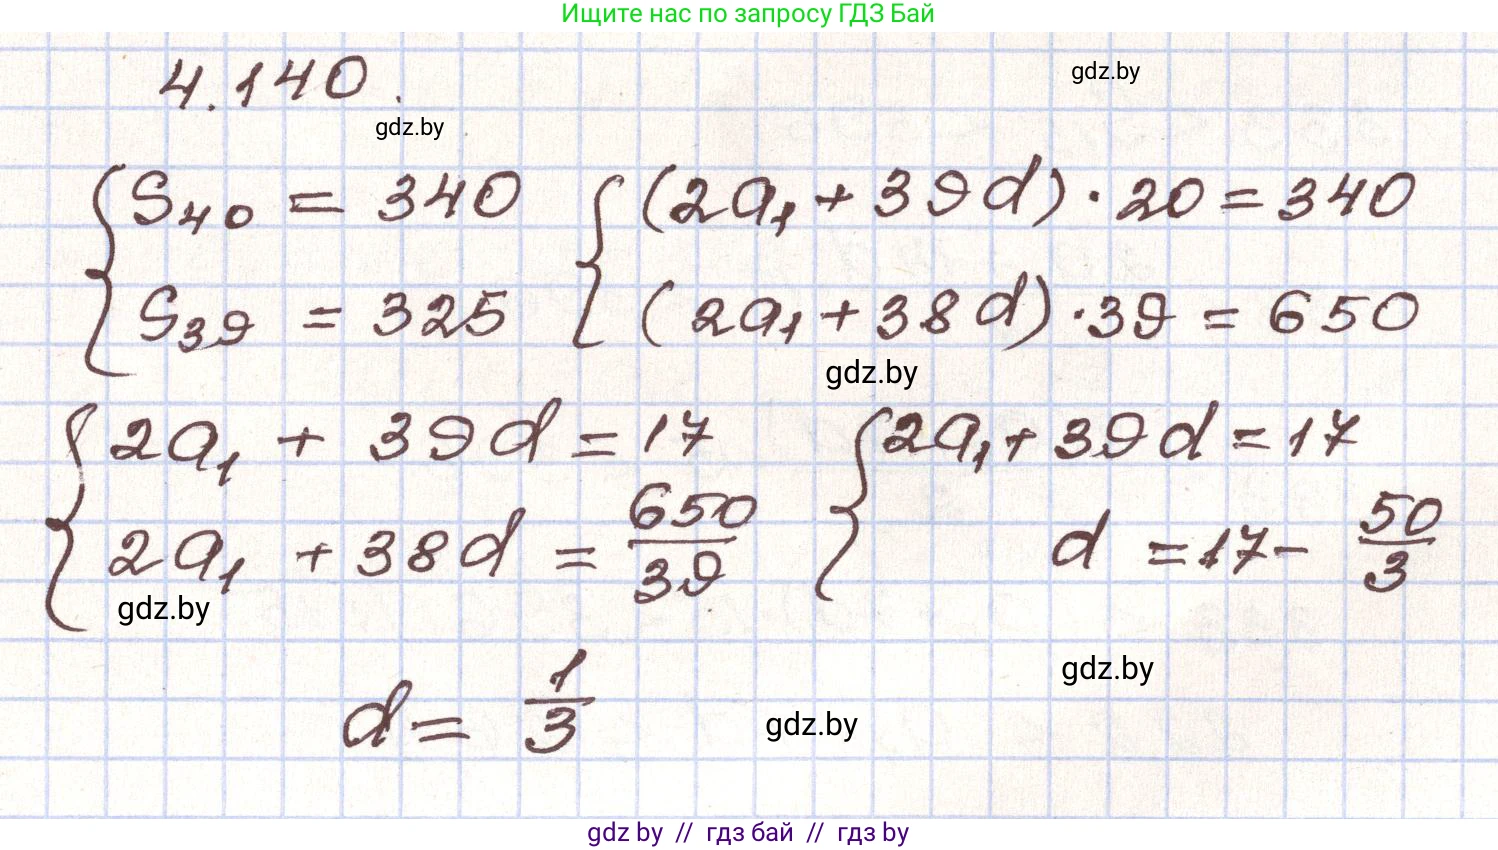 Ищите нас по запросу ГДЗ Бай
4.140.
gdz.by
gdz.by
{ S₄₀ = 340 { (2a₁ + 39d) · 20 = 340
S₃₉ = 325 (2a₁ + 38d) · 39 = 650
gdz.by
{ 2a₁ + 39d = 17 { 2a₁ + 39d = 17
2a₁ + 38d = 650/39 d = 17 - 50/3
gdz.by
gdz.by
d = 1/3
gdz.by
gdz by // гдз бай // гдз by